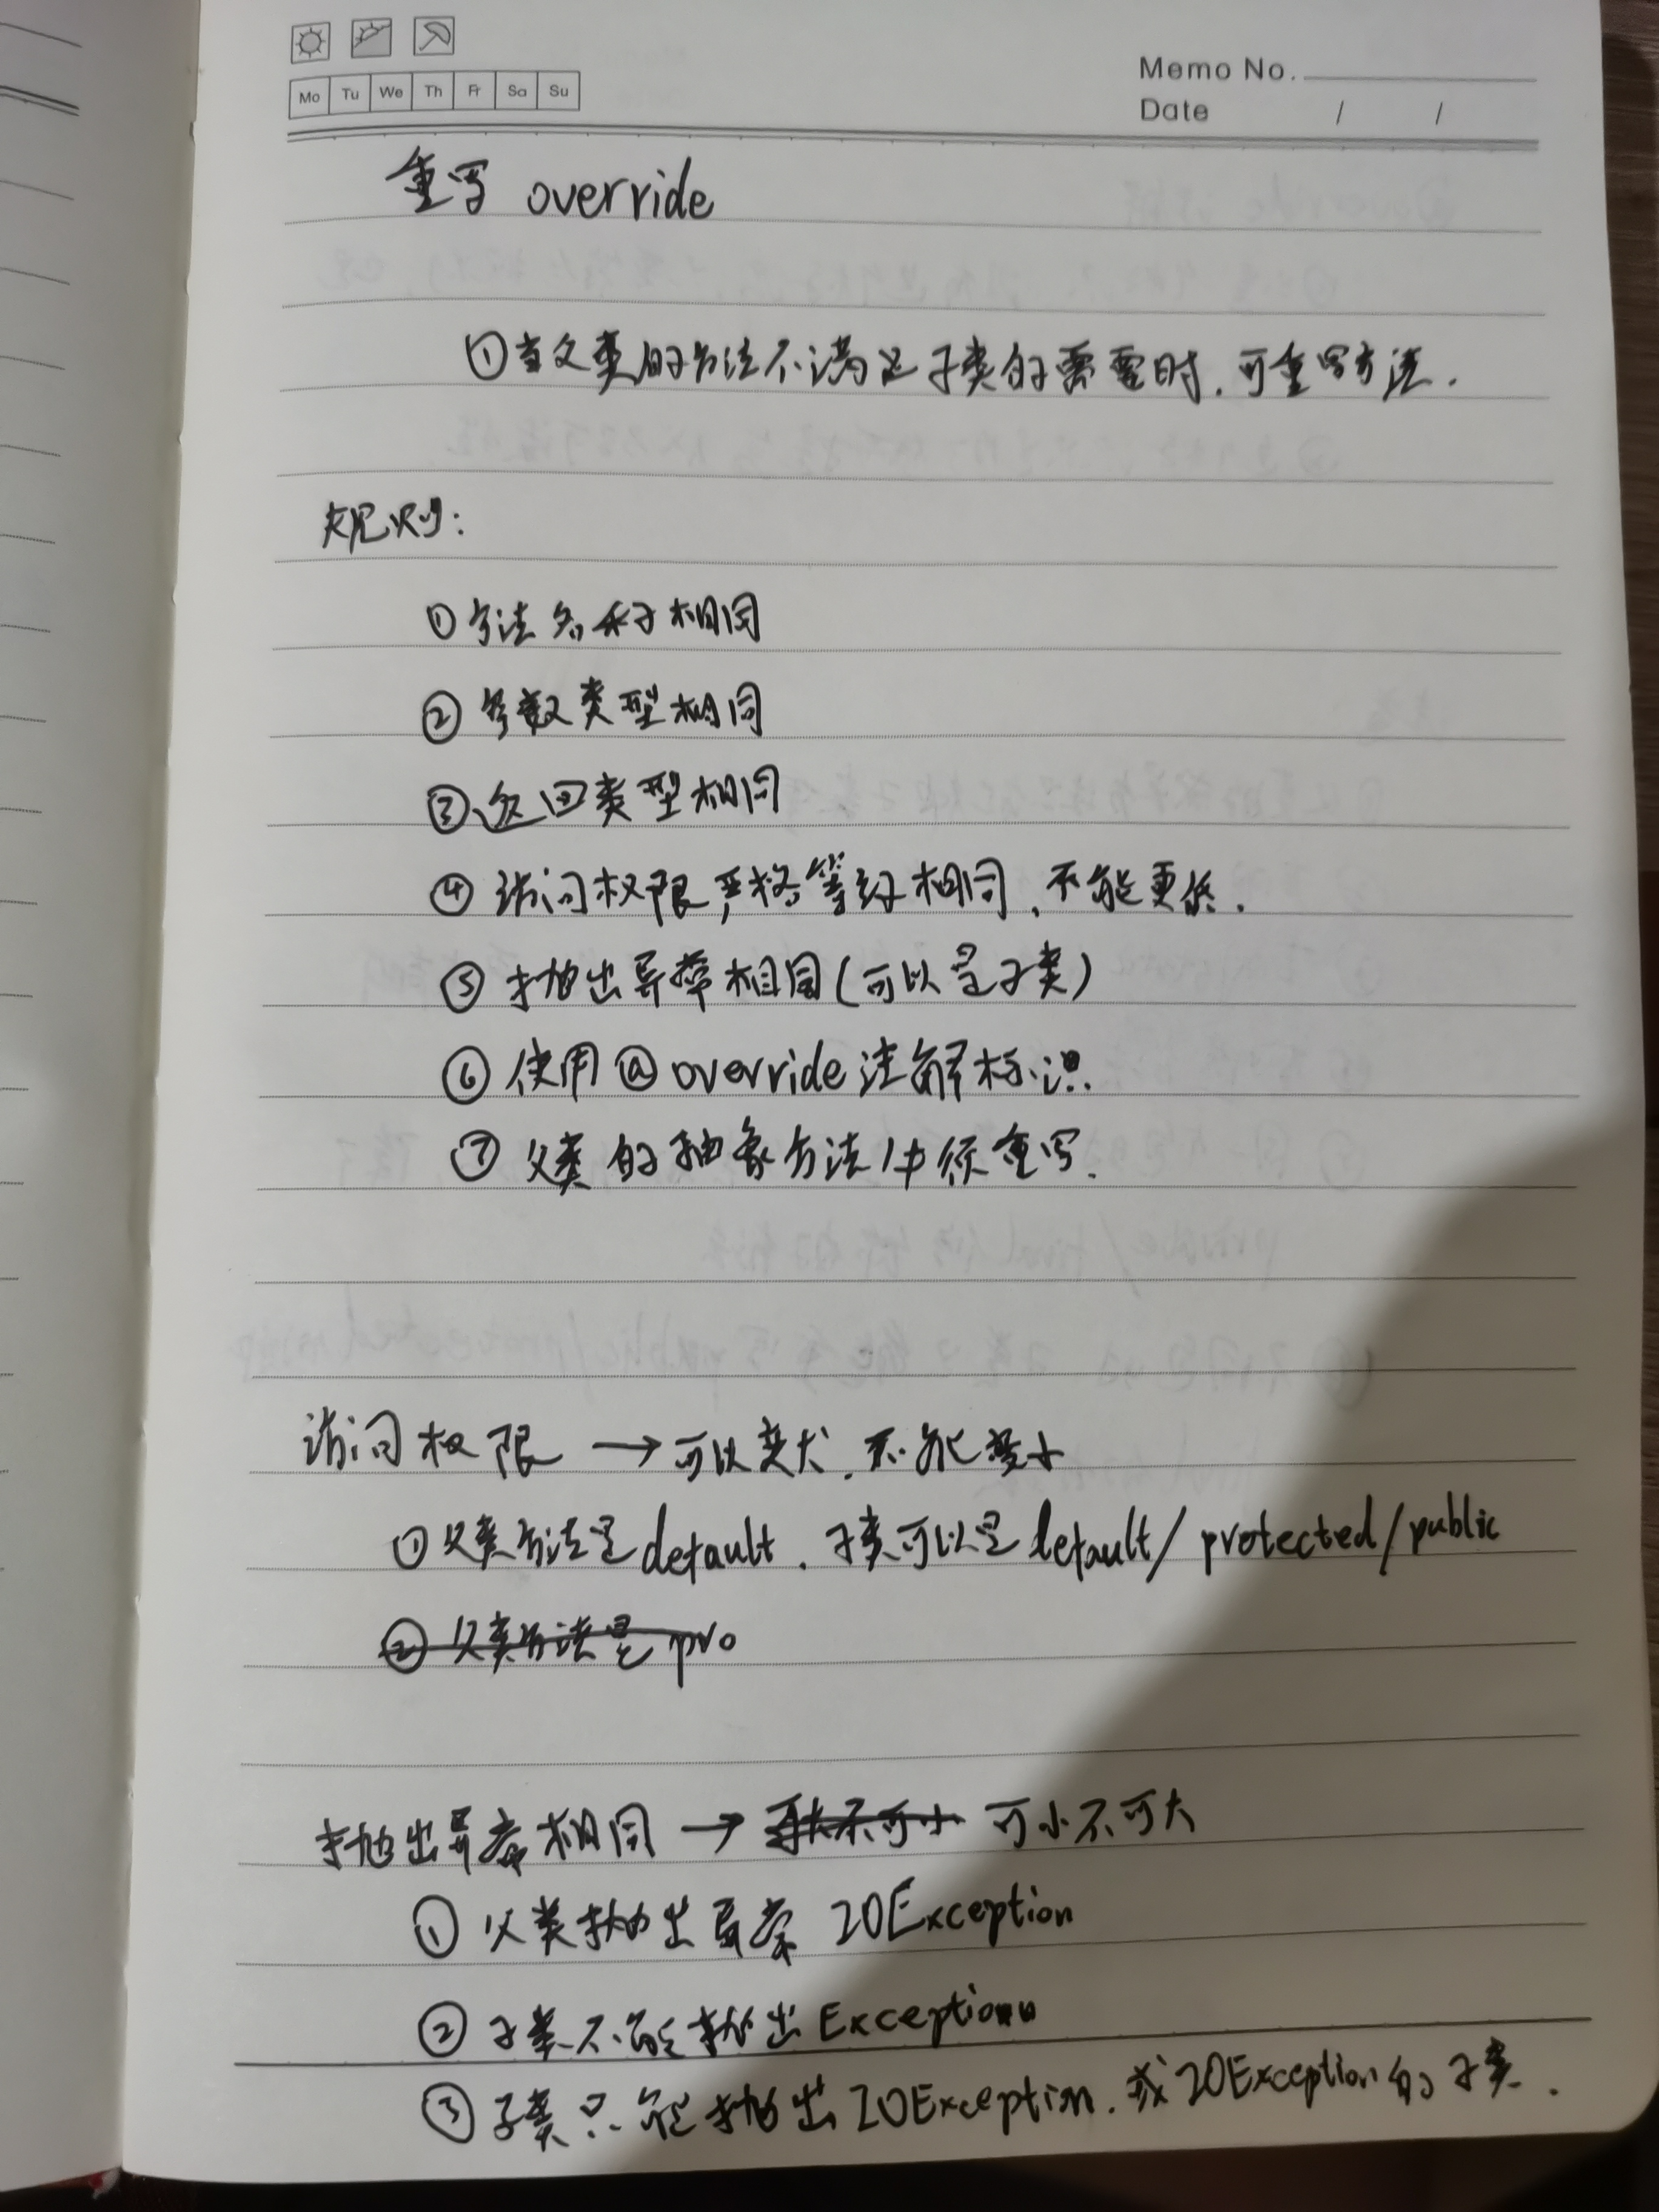 Mo Tu We Th Fr Sa Su
Memo No.
Date / /
重写 override
①当父类的方法不满足子类的需要时,可重写方法.
规则:
①方法名称相同
②参数类型相同
③返回类型相同
④访问权限严格等级相同,不能更低.
⑤抛出异常相同(可以是子类)
⑥使用@override注解标识.
⑦父类的抽象方法必须重写.
访问权限→可以变大,不能变小
①父类方法是default,子类可以是default/protected/public
②父类方法是pro
抛出异常相同→可大不可小 可小不可大
①父类抛出异常 IOException
②子类不能抛出Exception
③子类只能抛出IOException,或IOException的子类.